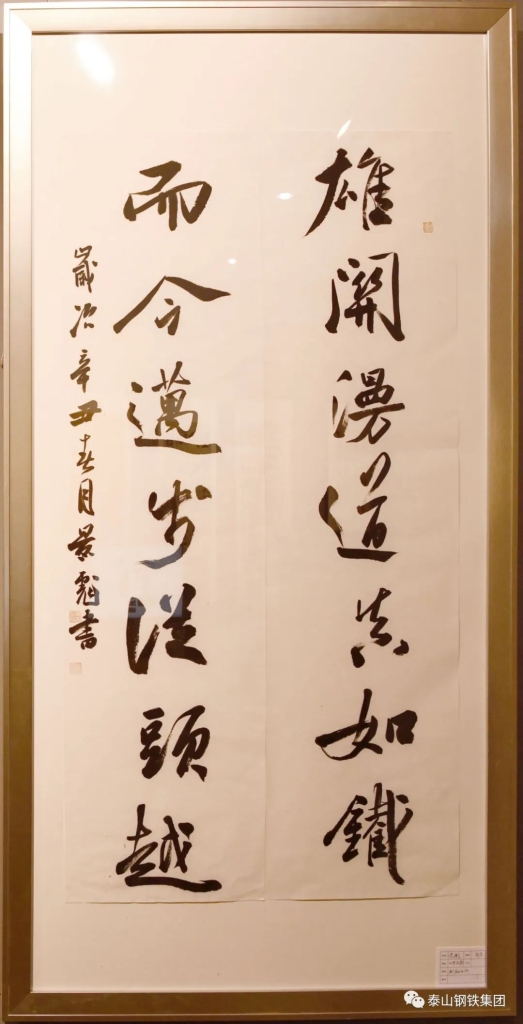 雄關漫道真如鐵
而今邁步從頭越
歲次辛丑春月景彪書
泰山钢铁集团